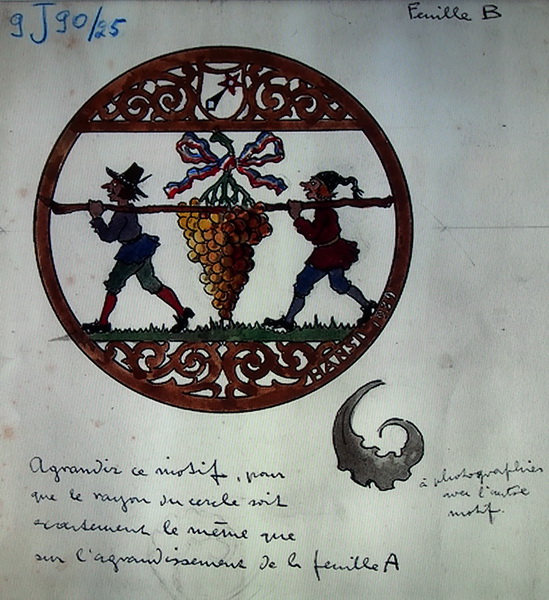 9 J 90/25
Feuille B
HANSI 1929
Agrandir ce motif, pour
que le rayon du cercle soit
exactement le même que
sur l'agrandissement de la feuille A
à photographier
avec l'autre
motif.